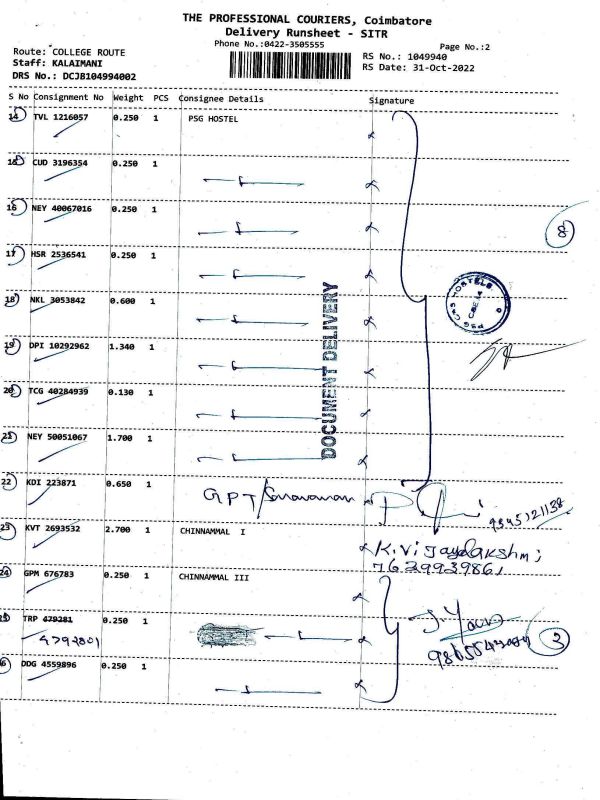 THE PROFESSIONAL COURIERS, Coimbatore
Delivery Runsheet - SITR
Phone No.:0422-3505555
Page No.:2
Route: COLLEGE ROUTE
Staff: KALAIMANI
DRS No.: DCJB104994002
RS No.: 1049940
RS Date: 31-Oct-2022
S No Consignment No Weight PCS Consignee Details Signature
14 TVL 1216057 0.250 1 PSG HOSTEL
15 CUD 3196354 0.250 1
16 NEY 40067016 0.250 1
8
17 HSR 2536541 0.250 1
PSG CAS HOSTELS
18 NKL 3053842 0.600 1
DOCUMENT DELIVERY
19 DPI 10292962 1.340 1
20 TCG 40284939 0.130 1
21 NEY 50051067 1.700 1
22 KDI 223871 0.650 1 GPT/Saravanan
9345121138
23 KVT 2693532 2.700 1 CHINNAMMAL I
K.Vijayalakshmi
7629939861
24 GPM 676783 0.250 1 CHINNAMMAL III
25 TRP 479281 0.250 1
4792801
3
26 DDG 4559896 0.250 1